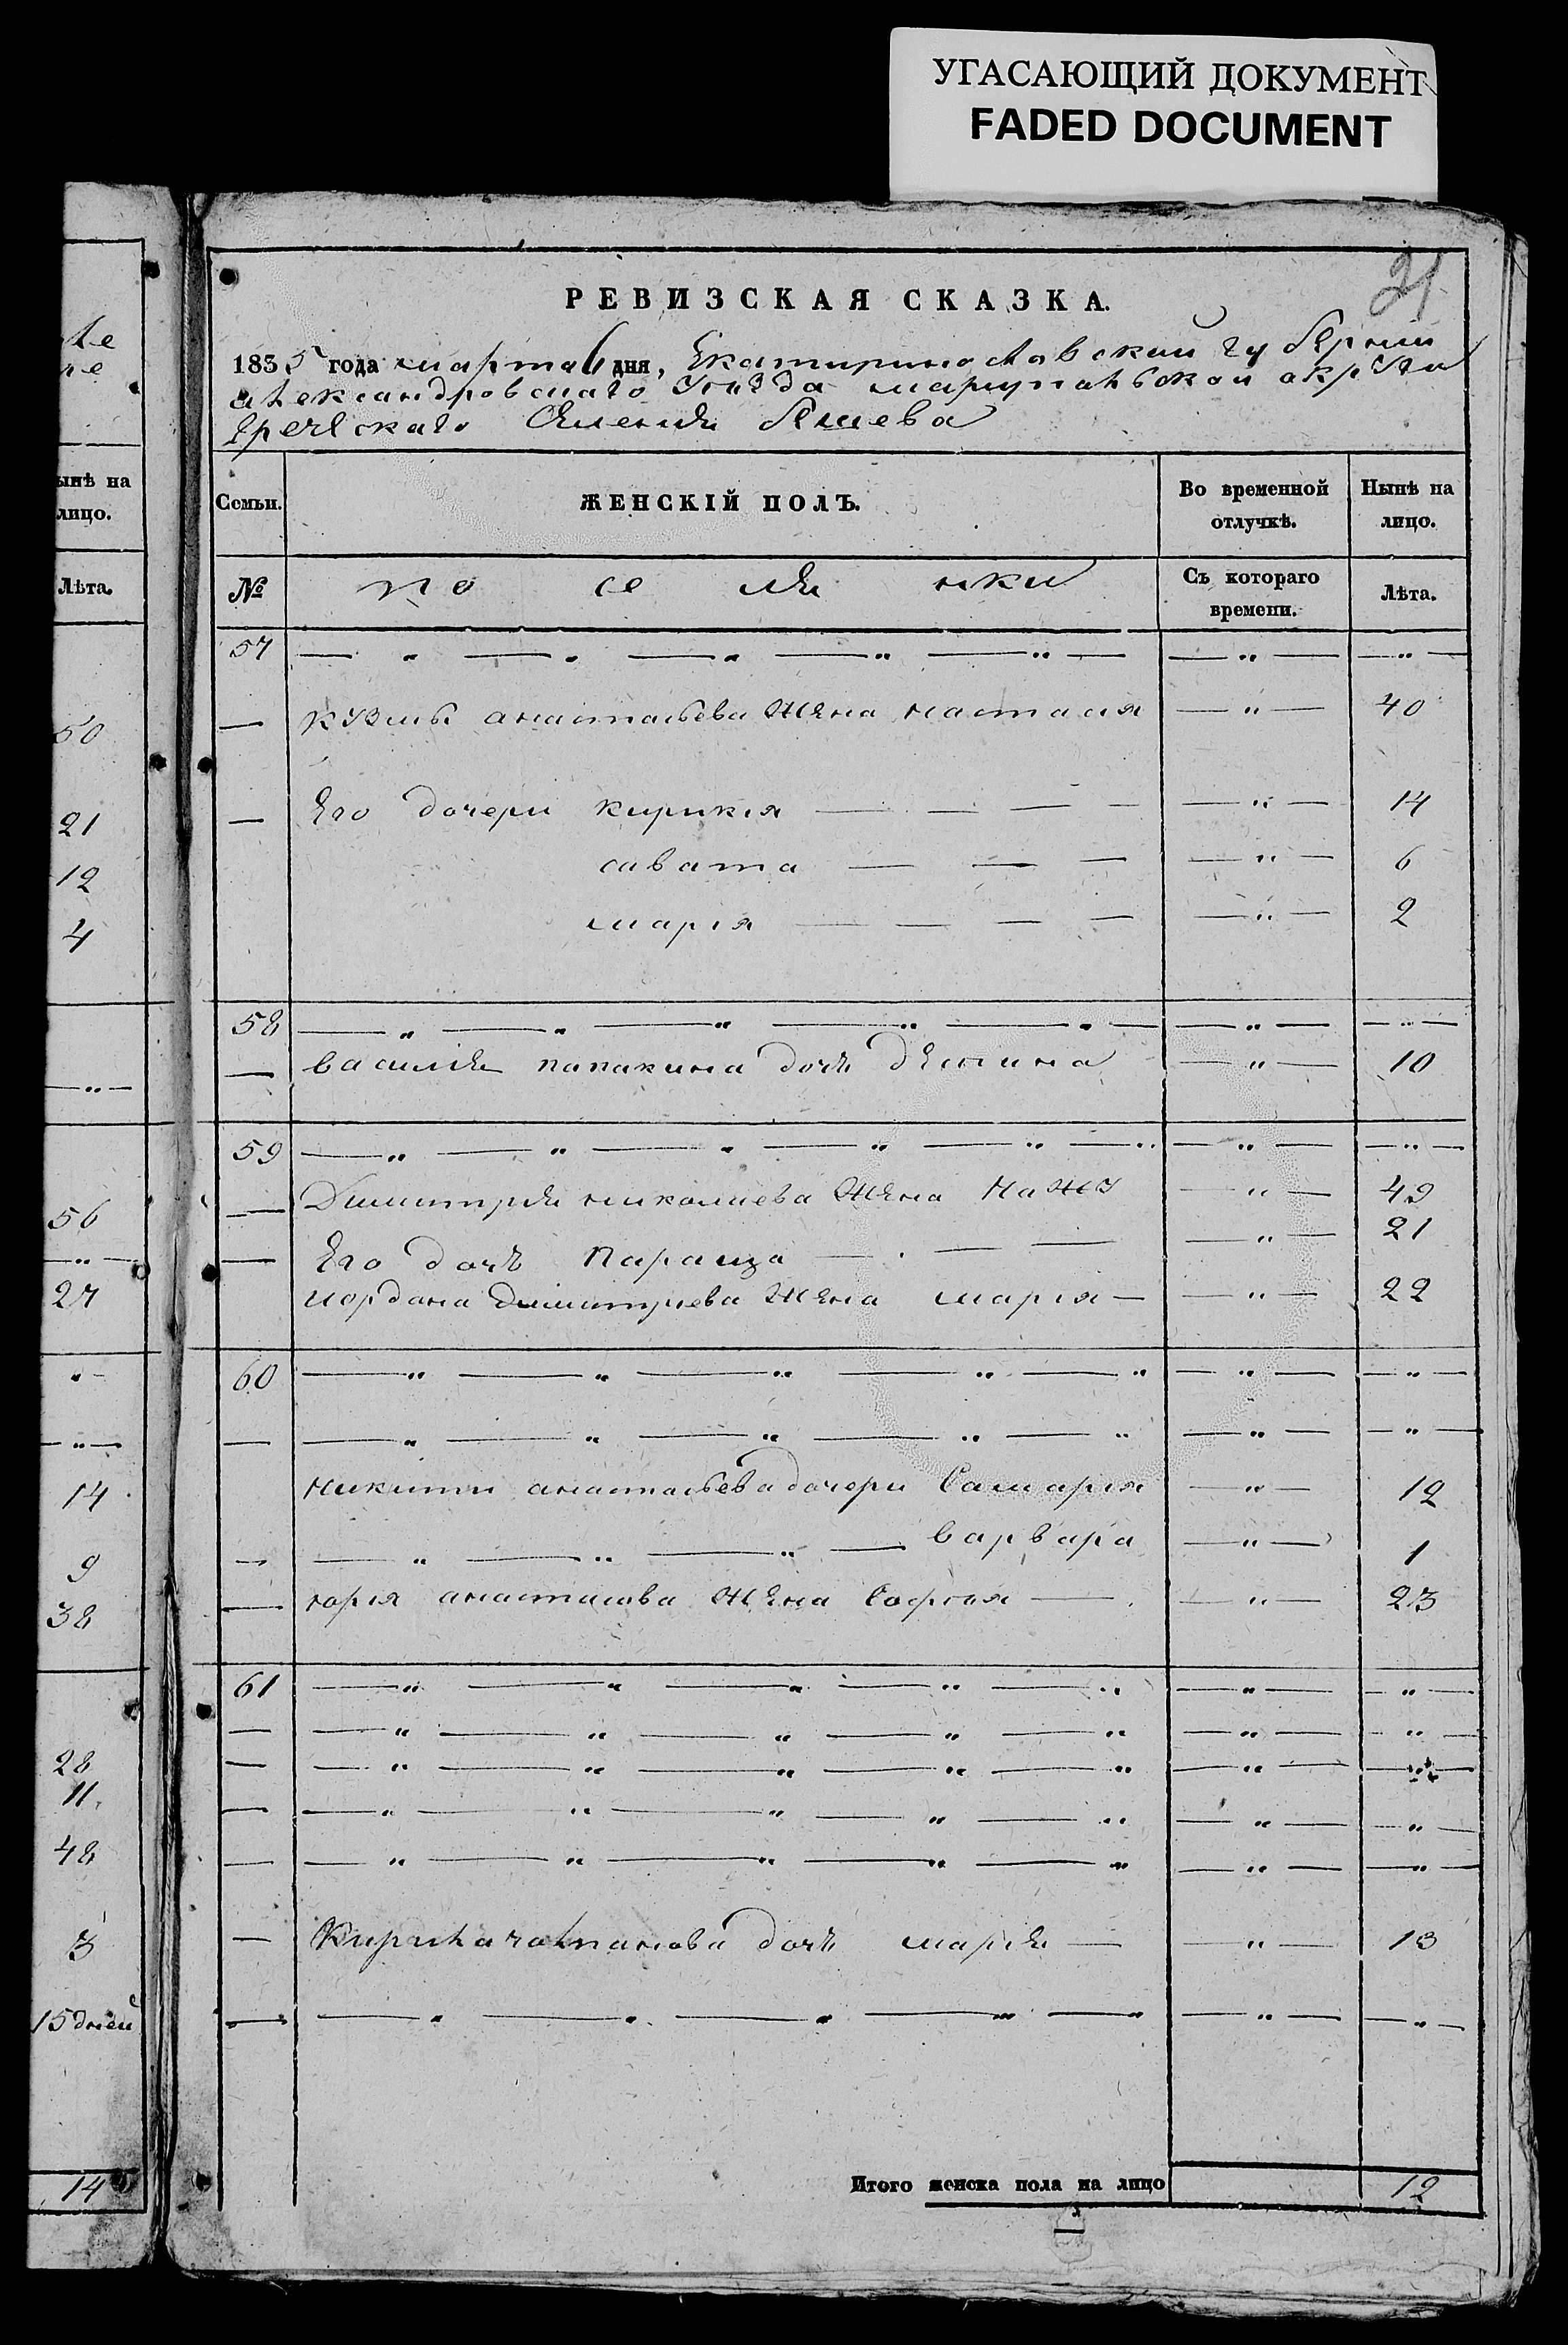 УГАСАЮЩИЙ ДОКУМЕНТ
FADED DOCUMENT
21
РЕВИЗСКАЯ СКАЗКА.
1835 года марта 6 дня, Екатиринославской губернии
александровскаго уезда мариупольской округи
греческаго
ынѣ на
лицо.
Лѣта.
50
21
12
4
— „ —
56
— „ —
27
„ -
— „ —
14
9
38
28
11.
48
3
15 дней
14
Семьи. ЖЕНСКІЙ ПОЛЪ. Во временной отлучкѣ. Нынѣ на лицо.
№ по се ля нки Съ котораго времени. Лѣта.
57 — „ — „ — „ — „ — „ — — „ — — „ —
— кузмы анастасьева жена настасия — „ — 40
— Его дочери кирикия — — — — „ — 14
савата — — — — „ — 6
мария — — — — — „ — 2
58 — „ — „ — „ — „ — „ — — „ — — „ —
— василия папакина дочь — „ — 10
59 — „ — „ — „ — „ — „ — „ — „ — — „ —
— Димитрия николаева жена — „ — 49
— Его дочь — — — — „ — 21
иордана Димитриева жена мария — — „ — 22
60 — „ — „ — „ — „ — „ — „ — — „ —
— — „ — „ — „ — „ — „ — „ — — „ —
никиты анастасьева дочери Самария — „ — 12
— — „ — „ — „ — варвара — „ — 1
— юрия анастасова жена София — — „ — 23
61 — „ — „ — „ — „ — „ — „ — — „ —
— — „ — „ — „ — „ — „ — „ — — „ —
— — „ — „ — „ — „ — „ — „ — — „ —
— — „ — „ — „ — „ — „ — „ — — „ —
— — „ — „ — „ — „ — „ — „ — — „ —
— дочь мария — — „ — 13
— — „ — „ — „ — „ — „ — „ — — „ —
Итого женска пола на лицо 12